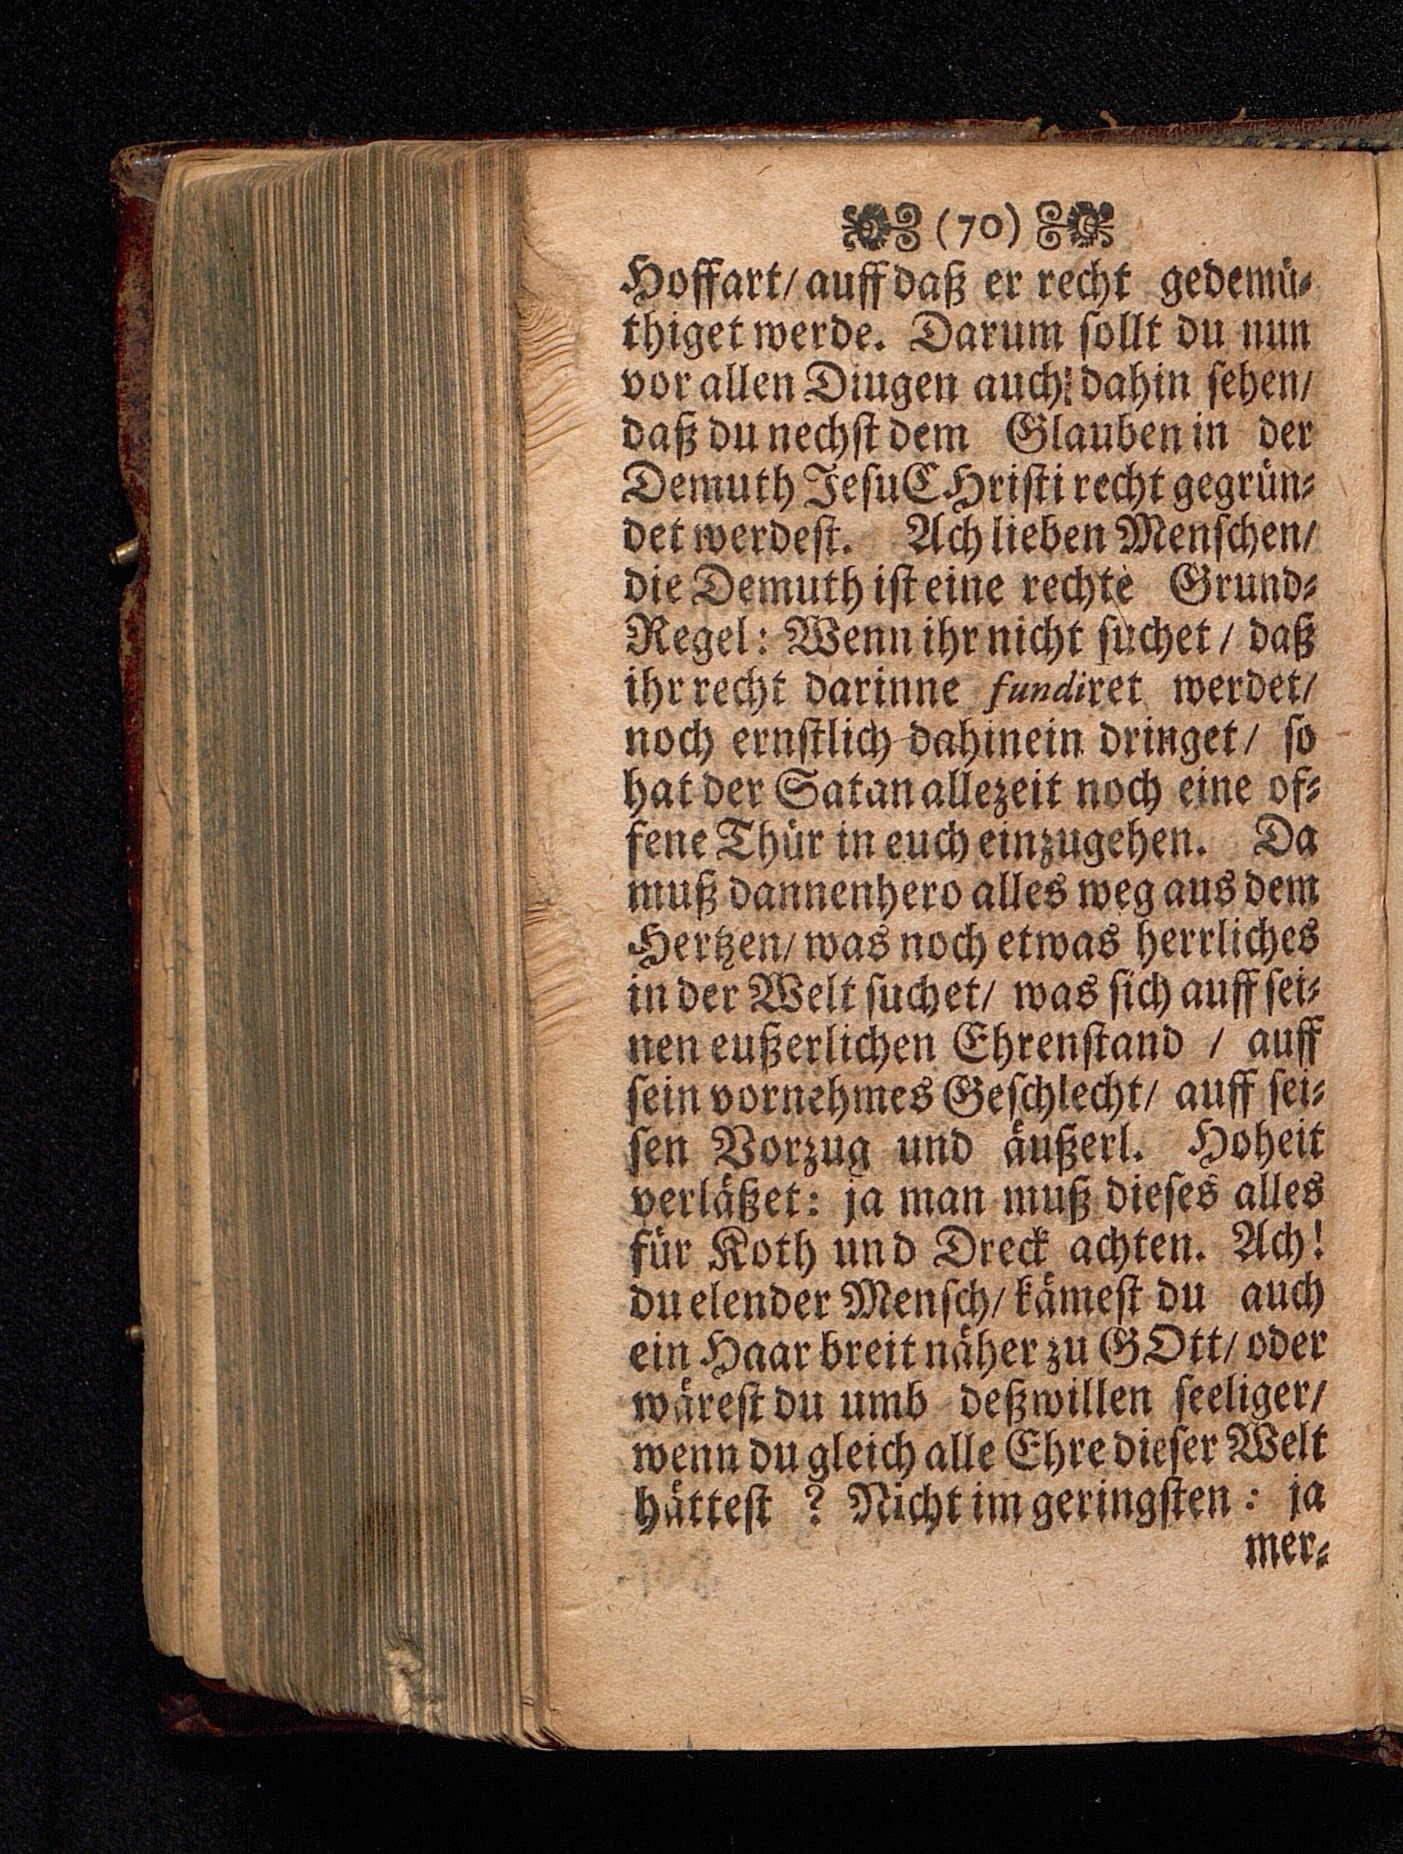 (70)
Hoffart/ auff daß er recht gedemü⸗
thiget werde. Darum ſollt du nun
vor allen Diugen auch dahin ſehen/
daß du nechſt dem Glauben in der
Demuth JeſuCHriſti recht gegrün⸗
det werdeſt. Ach lieben Menſchen/
die Demuth iſt eine rechte Grund⸗
Regel: Wenn ihr nicht ſuchet / daß
ihr recht darinne fundiret werdet/
noch ernſtlich dahinein dringet/ ſo
hat der Satan allezeit noch eine of⸗
fene Thür in euch einzugehen. Da
muß dannenhero alles weg aus dem
Hertzen/ was noch etwas herrliches
in der Welt ſuchet/ was ſich auff ſei⸗
nen eußerlichen Ehrenſtand / auff
ſein vornehmes Geſchlecht/ auff ſei⸗
ſen Vorzug und äußerl. Hoheit
verläßet: ja man muß dieſes alles
für Koth und Dreck achten. Ach!
du elender Menſch/ kämeſt du auch
ein Haar breit näher zu GOtt/ oder
wäreſt du umb deßwillen ſeeliger/
wenn du gleich alle Ehre dieſer Welt
hätteſt ? Nicht im geringſten : ja
mer⸗